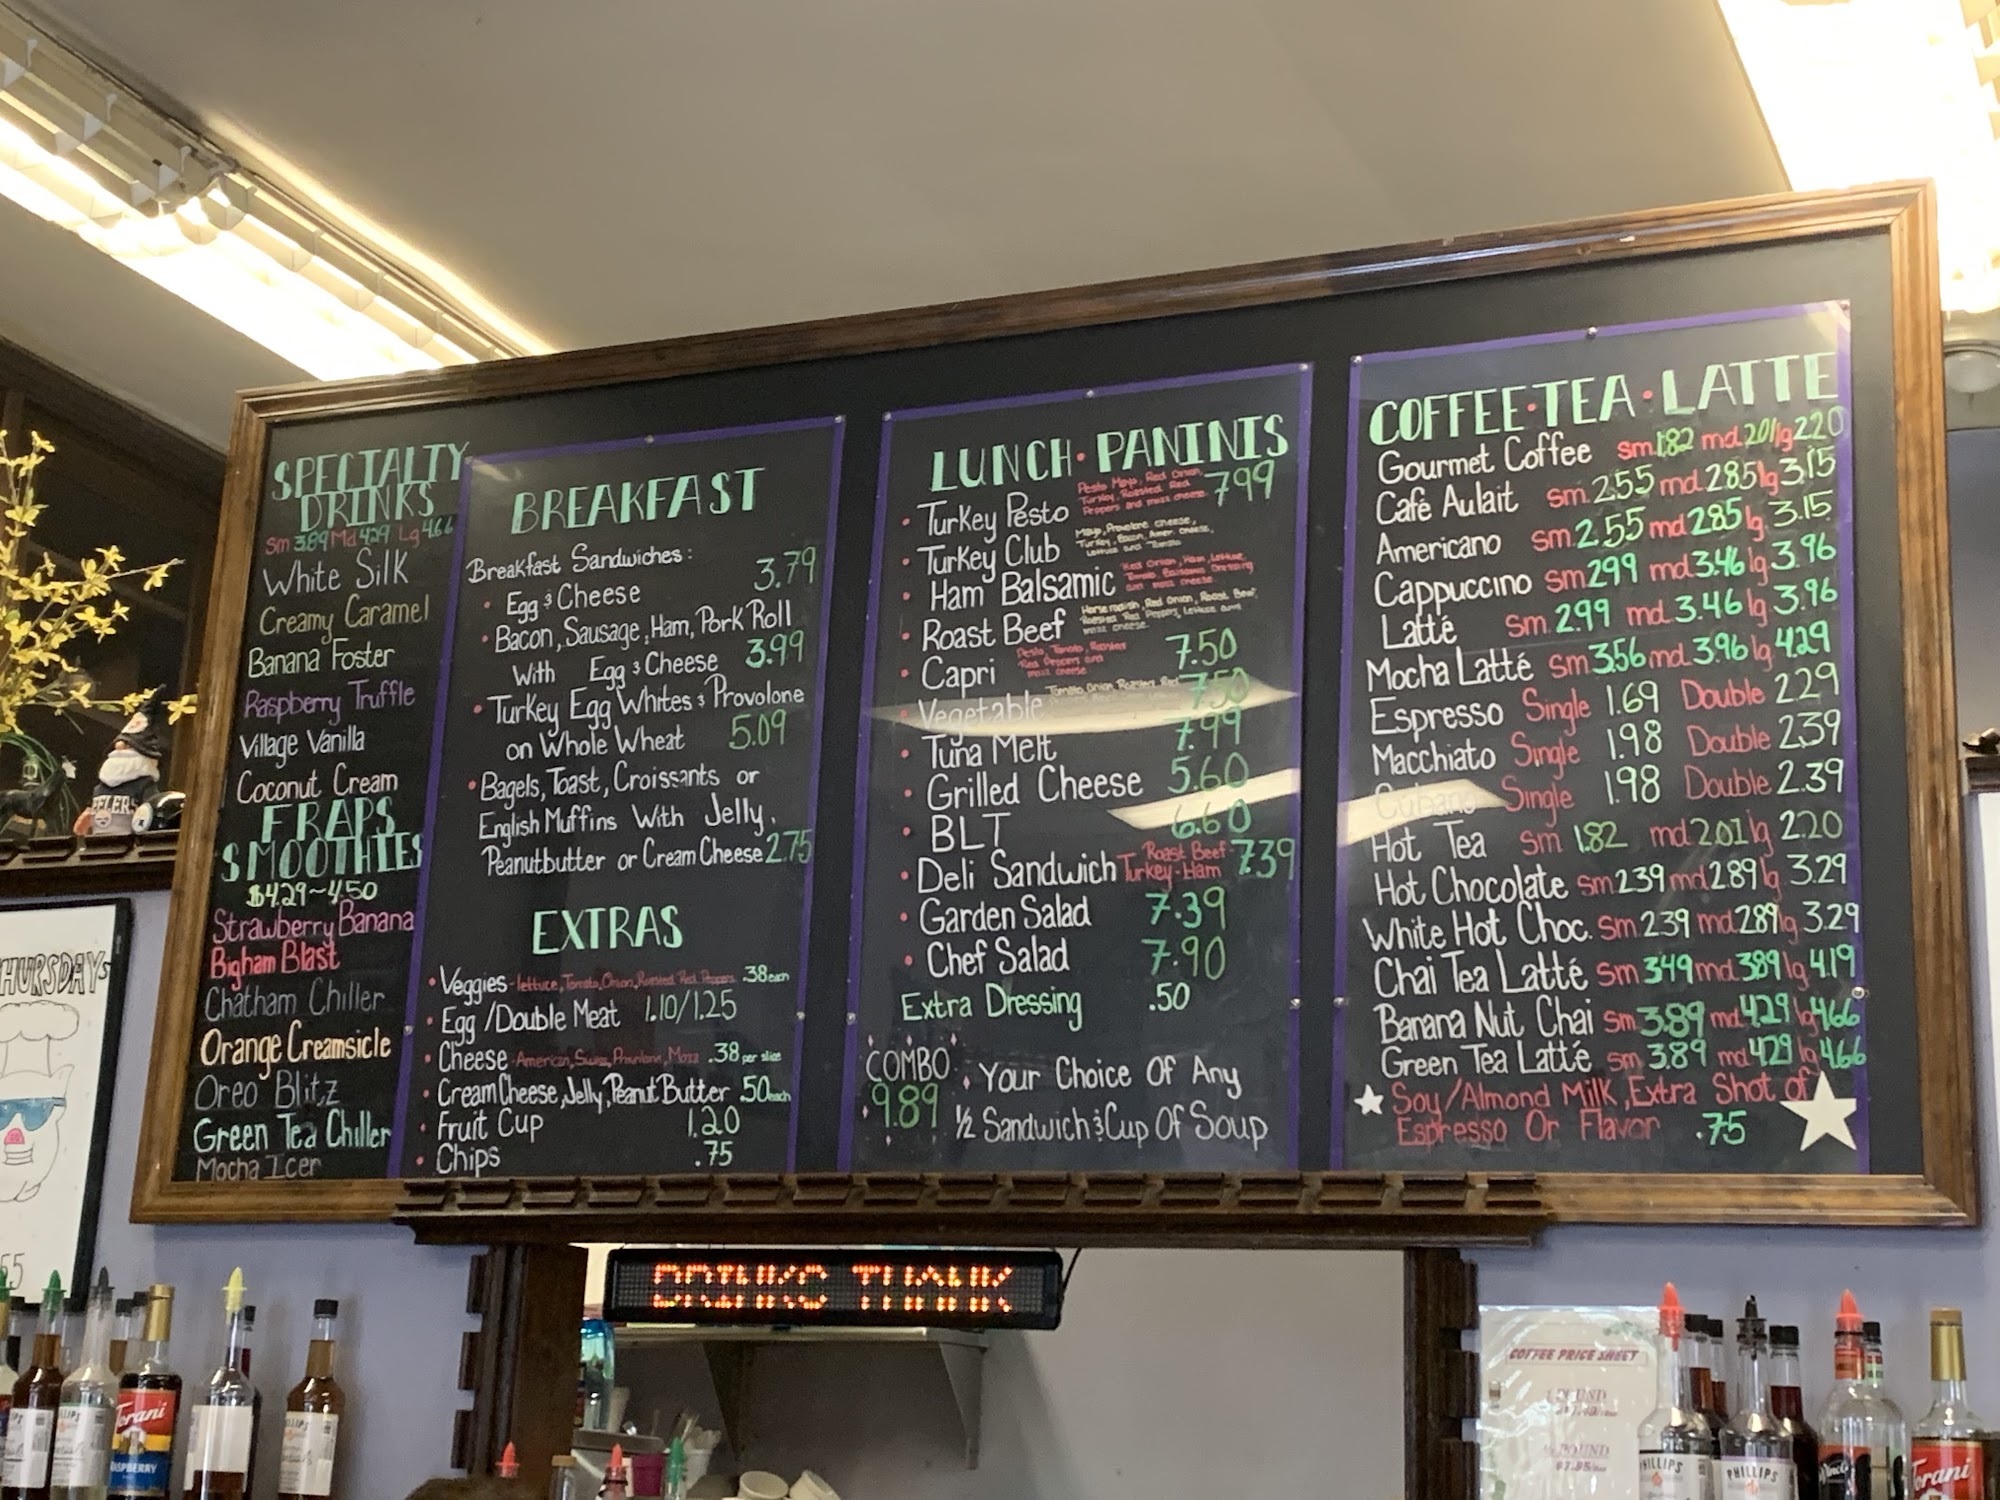 SPECIALTY
DRINKS
Sm 3.89 Md 4.29 Lg 4.66
White Silk
Creamy Caramel
Banana Foster
Raspberry Truffle
Village Vanilla
Coconut Cream
FRAPS
SMOOTHIES
$4.29~4.50
Strawberry Banana
Bigham Blast
Chatham Chiller
Orange Creamsicle
Oreo Blitz
Green Tea Chiller
Mocha Icer
BREAKFAST
Breakfast Sandwiches:
• Egg & Cheese 3.79
• Bacon, Sausage, Ham, Pork Roll
With Egg & Cheese 3.99
• Turkey Egg Whites & Provolone
on Whole Wheat 5.09
• Bagels, Toast, Croissants or
English Muffins With Jelly,
Peanutbutter or Cream Cheese 2.75
EXTRAS
• Veggies - lettuce, Tomato, Onion, Roasted Red Peppers .38 each
• Egg /Double Meat 1.10/1.25
• Cheese - American, Swiss, Provolone, Mozz .38 per slice
• Cream Cheese, Jelly, Peanut Butter .50 each
• Fruit Cup 1.20
• Chips .75
LUNCH • PANINIS
• Turkey Pesto Pesto Mayo, Red Onion, 7.99
Turkey, Roasted Red
Peppers and mozz cheese
• Turkey Club Mayo, Provolone cheese,
Turkey, Bacon, Amer. cheese,
Lettuce and Tomato
• Ham Balsamic Red Onion, Ham, Lettuce,
Tomato, Balsamic Dressing
and mozz cheese
• Roast Beef Horseradish, Red Onion, Roast Beef,
Roasted Red Peppers, Lettuce and
mozz cheese
• Capri Pesto, Tomato, Roasted 7.50
Red Peppers and
mozz cheese
• Vegetable Tomato, Onion, Roasted Red 7.50
• Tuna Melt 7.99
• Grilled Cheese 5.60
• BLT 6.60
• Deli Sandwich Roast Beef- 7.39
Turkey-Ham
• Garden Salad 7.39
• Chef Salad 7.90
Extra Dressing .50
COMBO
9.89
Your Choice Of Any
½ Sandwich & Cup Of Soup
COFFEE • TEA • LATTE
Gourmet Coffee sm 1.82 md 2.01 lg 2.20
Café Aulait sm 2.55 md 2.85 lg 3.15
Americano sm 2.55 md 2.85 lg 3.15
Cappuccino sm 2.99 md 3.46 lg 3.96
Latté sm 2.99 md 3.46 lg 3.96
Mocha Latté sm 3.56 md 3.96 lg 4.29
Espresso Single 1.69 Double 2.29
Macchiato Single 1.98 Double 2.39
Cubano Single 1.98 Double 2.39
Hot Tea sm 1.82 md 2.01 lg 2.20
Hot Chocolate sm 2.39 md 2.89 lg 3.29
White Hot Choc. sm 2.39 md 2.89 lg 3.29
Chai Tea Latté sm 3.49 md 3.89 lg 4.19
Banana Nut Chai sm 3.89 md 4.29 lg 4.66
Green Tea Latté sm 3.89 md 4.29 lg 4.66
Soy/Almond Milk, Extra Shot of
Espresso Or Flavor .75
HURSDAYS
DRINKS THANK
COFFEE PRICE SHEET
POUND
POUND
Torani
RASPBERRY
PHILLIPS
PHILLIPS
Torani